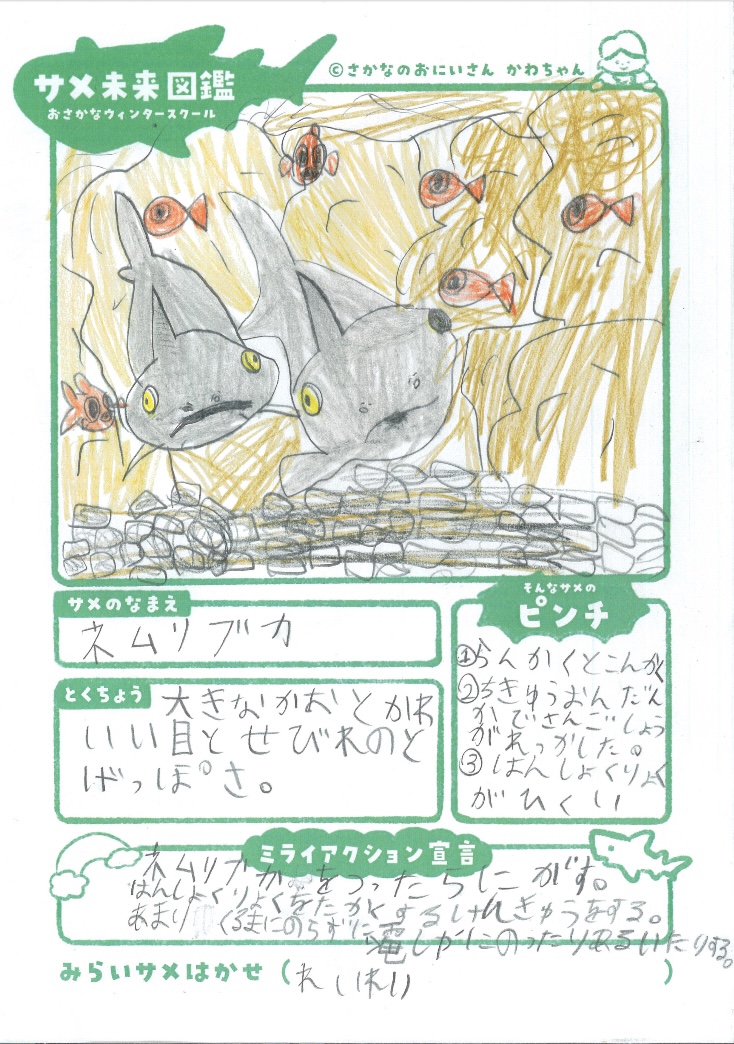 サメ未来図鑑
おさかなウィンタースクール
©さかなのおにいさん かわちゃん
サメのなまえ
ネムリブカ
とくちょう
大きなかおとかわ
いい目とせびれのと
げっぽさ。
そんなサメの
ピンチ
①らんかくとこんかく
②ちきゅうおんだん
かでさんごしょう
がれっかした。
③はんしょくりょく
がひくい
ミライアクション宣言
ネムリブカをつったらにがす。
はんしょくりょくをたかくするけんきゅうをする。
あまりくるまにのらずに電しゃにのったりあるいたりする。
みらいサメはかせ（れいれい）